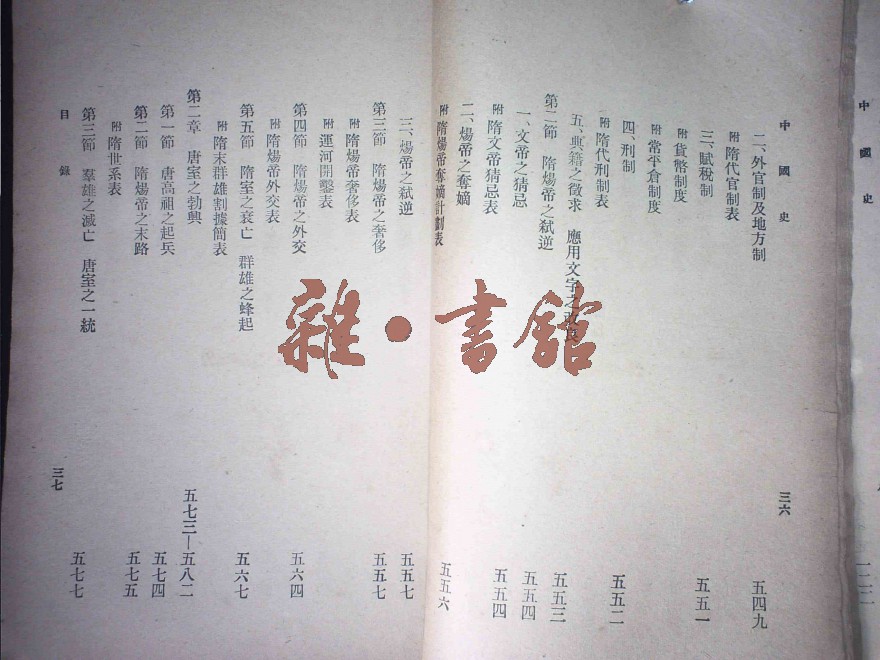 中國史
中國史
三六
二、外官制及地方制 五四九
附 隋代官制表
三、賦稅制 五五一
附 貨幣制度
附 常平倉制度
四、刑制 五五二
附 隋代刑制表
五、典籍之徵求 應用文字之改良 五五三
第二節 隋煬帝之弑逆 五五四
一、文帝之猜忌 五五四
附 隋文帝猜忌表
二、煬帝之奪嫡 五五六
附 隋煬帝奪嫡計劃表
三、煬帝之弑逆 五五七
第三節 隋煬帝之奢侈 五五七
附 隋煬帝奢侈表
附 運河開鑿表
第四節 隋煬帝之外交 五六四
附 隋煬帝外交表
第五節 隋室之衰亡 群雄之蜂起 五六七
附 隋末群雄割據簡表
第二章 唐室之勃興 五七三—五八二
第一節 唐高祖之起兵 五七四
第二節 隋煬帝之末路 五七五
附 隋世系表
第三節 羣雄之滅亡 唐室之一統 五七七
目錄
三七
雜·書館